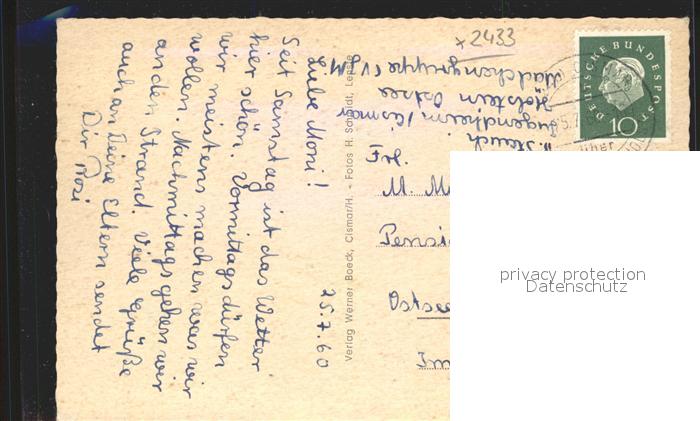 x2433
DEUTSCHE BUNDESPOST
10
25.7.60
Liebe Moni!
Seit Samstag ist das Wetter
hier schön. Vormittags dürfen
wir meistens machen was wir
wollen. Nachmittags gehen wir
an den Strand. Viele Grüße
auch an Deine Eltern sendet
Dir Rosi
Verlag Werner Boeck, Cismar/H. - Fotos H. Schmidt, Lensahn
Jugendheim Cismar
Holstein Ostsee
Mädchengruppe
Frl.
M. M
Pensi
Ostsee
Im
privacy protection
Datenschutz